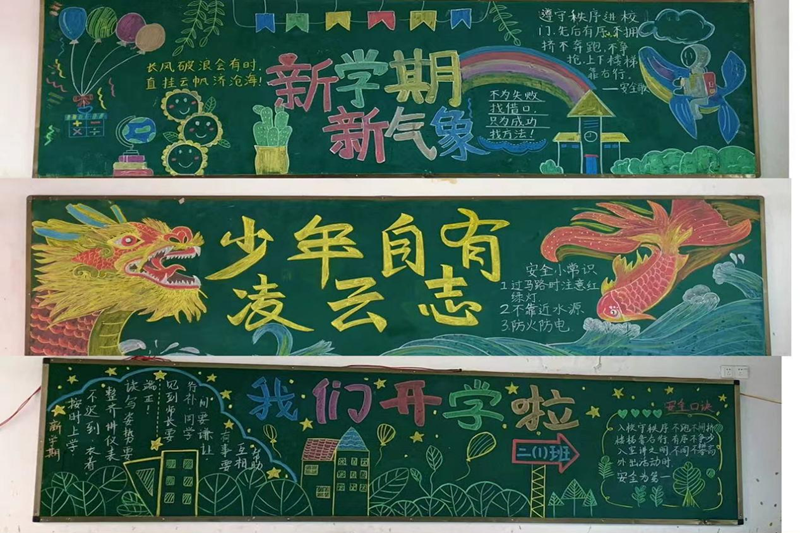 长风破浪会有时,
直挂云帆济沧海!
新学期
新气象
不为失败
找借口,
只为成功
找方法!
遵守秩序进校
门,先后有序不拥
挤不奔跑,不争
抢,上下楼梯
靠右行。
少年自有
凌云志
安全小常识
1过马路时注意红
绿灯
2不靠近水源
3防火防电
我们开学啦
二(1)班
新学期
按时上学
不迟到,衣着
整齐讲仪表
读写姿势要
端正!
见到师长要
有礼
同学
互相
安全口诀
入校守秩序
楼梯靠右行
外出活动时
安全为第一